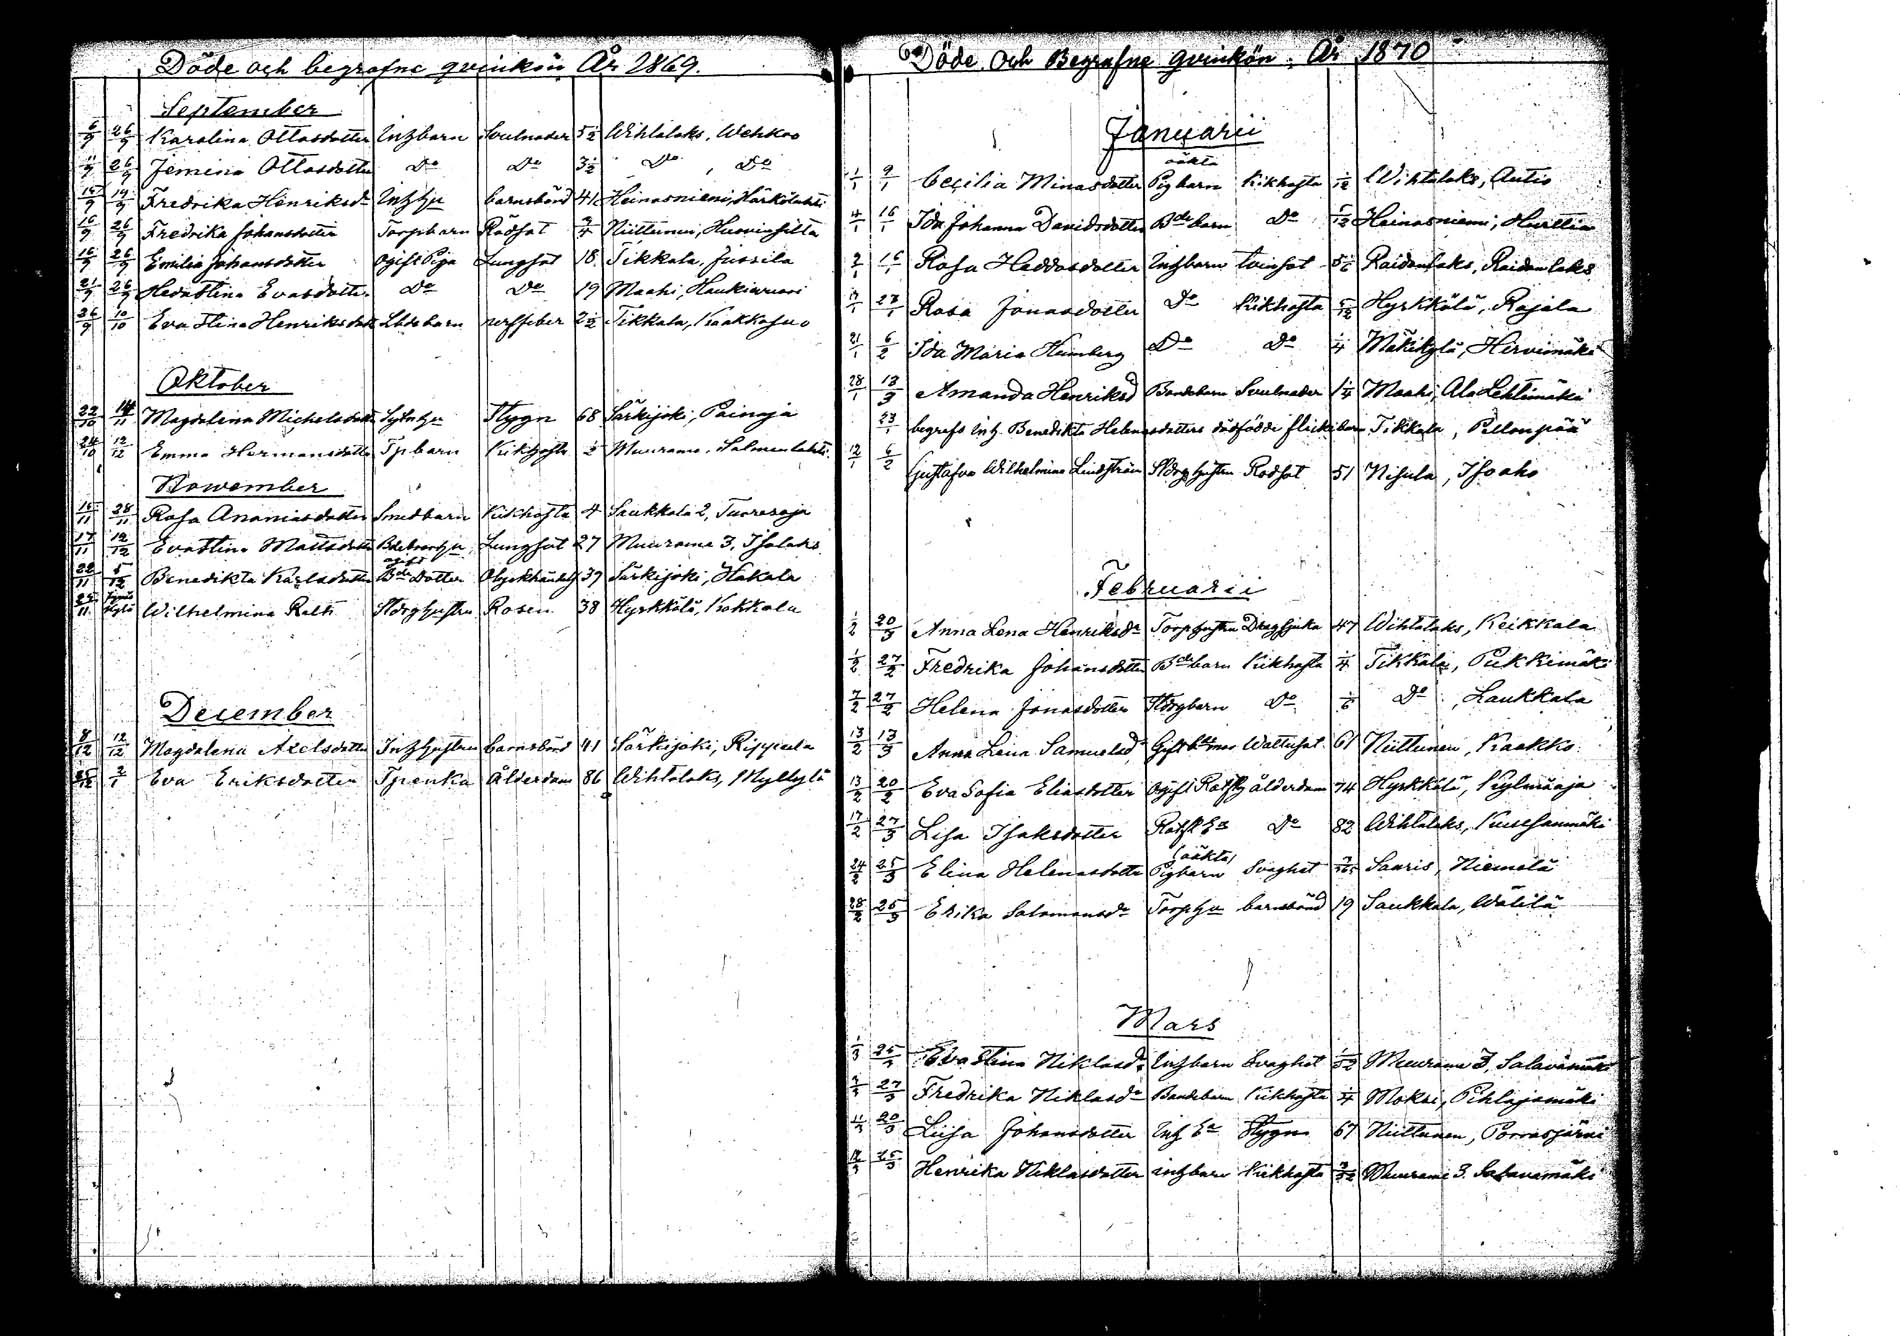 Döde och begrafne qvinkön År 1869.
September
6/9 26/9 Karolina Ottosdotter Inhbarn Svulnader 5 1/2 Wihtalaks, Wehkoo
11/9 26/9 Jemina Ottosdotter Do Do 3 1/2 Do, Do
15/9 19/9 Fredrika Henriksdr Inhhu barnsbörd 41 Heinosniemi, Härkölahti
16/9 26/9 Fredrika Johansdotter Torpbarn Rödsot 3/4 Niittunen,
16/9 26/9 Emilia Johansdotter Ogift Piga Lungsot 18 Tikkala, Jussila
21/9 26/9 Hedastina Evasdotter Do Do 19 Maahi, Haukiwuori
26/9 10/10 Eva Stina Henriksdotr barn nerffeber 2 1/2 Tikkala, Kaakkosuo
Oktober
22/10 14/11 Magdalena Michelsdotter Sytnhu Stygn 68 Särkijoki, Painaja
24/10 12/12 Emma Hermansdotter Tpbarn Kikhosta 1/2 Muurame, Salmenlahti
November
15/11 28/11 Rosa Ananiasdotter Smedbarn Kikhosta 4 Saukkola 2, Tuoresoja
17/11 12/12 Evastina Mattsdotter Lungsot 27 Muurame 3, Isolaks
22/11 5/12 Benedikta Karlsdotter ogift Bde Dotter Olyckshändelse 39 Särkijoki, Hakala
25/11 Wilhelmina Rath Stdrghustru Rosen 38 Hyrkkälä, Kokkola
December
8/12 12/12 Magdalena Axelsdotter Inhhustru barnsbörd 41 Särkijoki, Rippula
25/12 2/1 Eva Eriksdotter Tpenka Ålderdom 86 Wihtalaks, Myllylä
Döde och Begrafne qvinkön År 1870
Januarii
oäkta
1/1 9/1 Cecilia Minasdotter Pigbarn Kikhosta 1/12 Wihtalaks, Autio
4/1 16/1 Ida Johanna Davidsdotter Bdebarn Do 5/12 Heinosniemi, Huvttia
2/1 16/1 Rosa Heddasdotter Inhbarn tvinsot 5/6 Raidanlaks, Raidanlaks
17/1 27/1 Rosa Jonasdotter Do Kikhosta 5/12 Hyrkkälä, Rajala
21/1 6/2 Ida Maria Humberg Do Do 1/4 Mäkikylä, Hirvimäki
28/1 13/3 Amanda Henriksd Bondebarn Svulnader 1 1/4 Maahi, Ala Lehtimäki
23/1 begrofs Inh. Benedikta Helenasdotters dödfödde flickebarn Tikkala, Pellonpää
12/1 6/2 Gustafva Wilhelmina Lindström Stdrghustru Rödsot 51 Nisula, Isoaho
Februarii
1/2 20/3 Anna Lena Henriksdr Torphustru Dragsjuka 47 Wihtalaks, Keikkala
1/2 27/2 Fredrika Johansdotter Bdebarn Kikhosta 1/4 Tikkala, Pukkimäki
7/2 27/2 Helena Jonasdotter Stdrgbarn Do 1/6 Do, Laukkala
13/2 13/3 Anna Lena Samuelsd Gift bdemor Wattusot 61 Niittunen, Kaakko
13/2 20/2 Eva Sofia Eliasdotter Ogift Rothj ålderdom 74 Hyrkkälä, Kylmäoja
17/2 27/3 Lisa Isaksdotter Rothj Ea Do 82 Wihtalaks, Kuusanmäki
(oäkta)
24/2 25/3 Elina Helenasdotter Pigbarn Svaghet Sauris, Niemelä
28/2 25/3 Erika Salomonsdr Torphu barnsbörd 19 Saukkola, Wälilä
Mars
1/3 25/3 Eva Stina Niklasdr Inhbarn Svaghet 1/52 Muurame 3, Salavamäki
7/3 27/3 Fredrika Niklasdr Bondebarn Kikhosta 1/4 Moksi, Pihlajamäki
11/3 20/3 Liisa Johansdotter Inh Ea Stygn 67 Niittunen, Porrasjärvi
17/3 25/3 Henrika Niklasdotter inhbarn Kikhosta 3/52 Muurame 3. Salavamäki